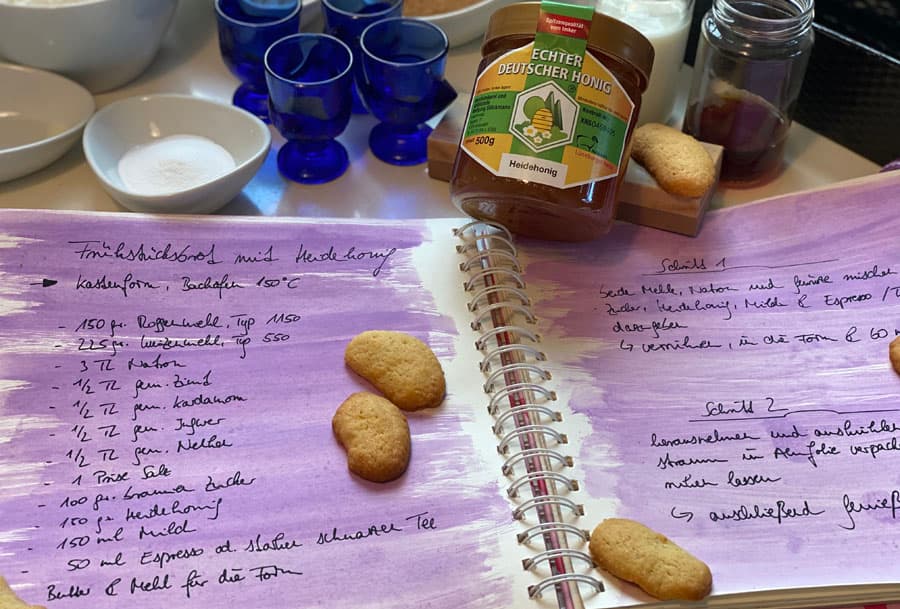 Spitzenqualität
vom Imker
ECHTER
DEUTSCHER HONIG
500g
Heidehonig
Frühstücksbrot mit Heidehonig
Kastenform, Backofen 150°C
- 150 gr. Roggenmehl, Typ 1150
- 225 gr. Weizenmehl, Typ 550
- 3 TL Natron
- 1/2 TL gem. Zimt
- 1/2 TL gem. Kardamom
- 1/2 TL gem. Ingwer
- 1/2 TL gem. Nelken
- 1 Prise Salz
- 100 gr. brauner Zucker
- 150 gr. Heidehonig
- 150 ml Milch
- 50 ml Espresso od. starker schwarzer Tee
Butter & Mehl für die Form
Schritt 1
beide Mehle, Natron und Gewürze mischen
Zucker, Heidehonig, Milch & Espresso /
dazugeben
↳ verrühren, in die Form & 60
Schritt 2
herausnehmen und auskühlen
stramm in Alufolie
ruhen lassen
↳ anschließend